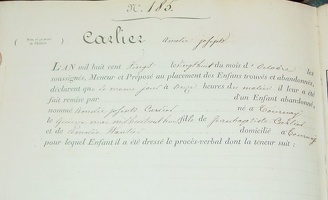 N.° 183.
Carlier Amélie josephe
L'AN mil huit cent vingt vingthuit du mois d'Octobre les
soussignés, Meneur et Préposé au placement des Enfans trouvés et abandonnés,
déclarent que le même jour à onze heures du matin il leur a été
fait remise par d'un Enfant abandonné,
nommé Amélie josephe Carlier né à Tournay
le quinze mai fille de jean baptiste Carlier
et de Amélie domicilié à Tournay
pour lequel Enfant il a été dressé le procès-verbal dont la teneur suit :